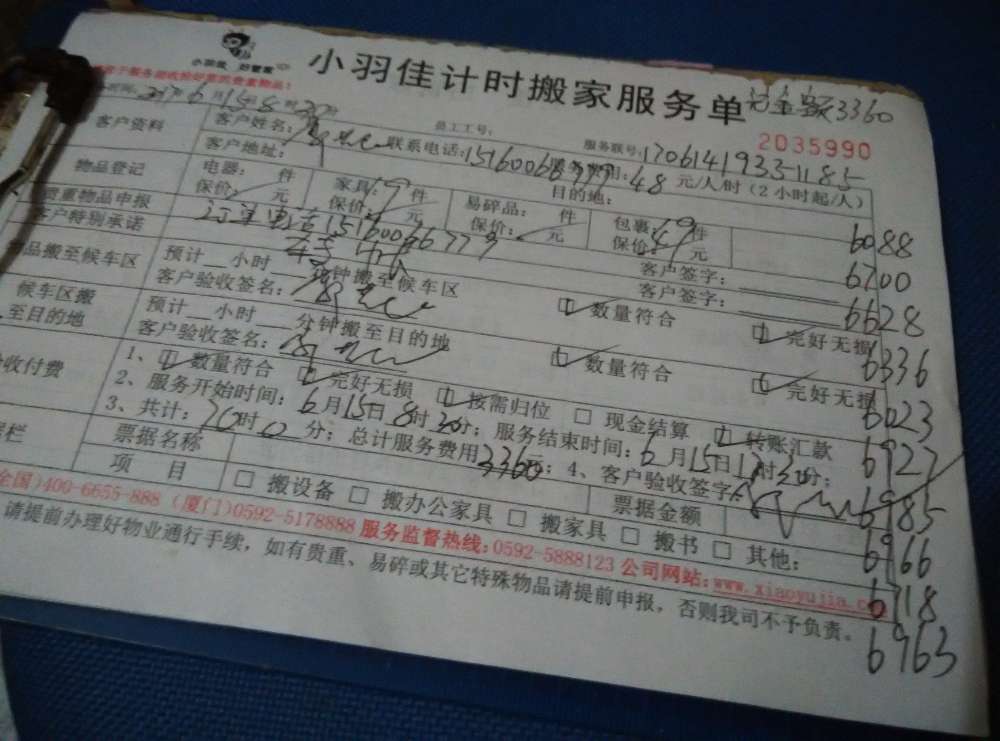 小羽佳 好管家
小羽佳计时搬家服务单 3360
2035990
6月15日8时30分 员工工号: 服务联号:170614193351185
客户资料 客户姓名: 联系电话:15160066779 费用:48元/人/时(2小时起/人)
客户地址: 目的地:
物品登记 电器: 件 家具:19件 易碎品: 件 包裹:49件 6088
贵重物品申报 保价: 元 保价: 元 保价: 元 保价: 元
客户特别承诺 客户签字: 6700
物品搬至候车区 预计 小时 分钟搬至候车区 客户签字: 6628
客户验收签名: 数量符合 完好无损 6336
候车区搬至目的地 预计 小时 分钟搬至目的地
客户验收签名: 数量符合 完好无损 6023
收付费 1、数量符合 完好无损 按需归位 现金结算 转账汇款 6927
2、服务开始时间:6月15日8时30分;服务结束时间:6月15日 时30分;
3、共计:70时0分;总计服务费用3360元;4、客户验收签字: 6985
栏 票据名称 票据金额 6966
项 目 搬设备 搬办公家具 搬家具 搬书 其他: 6718
全国)400-6655-888 (厦门)0592-5178888 服务监督热线:0592-5888123 公司网站:www.xiaoyujia.co
请提前办理好物业通行手续,如有贵重、易碎或其它特殊物品请提前申报,否则我司不予负责。 6963